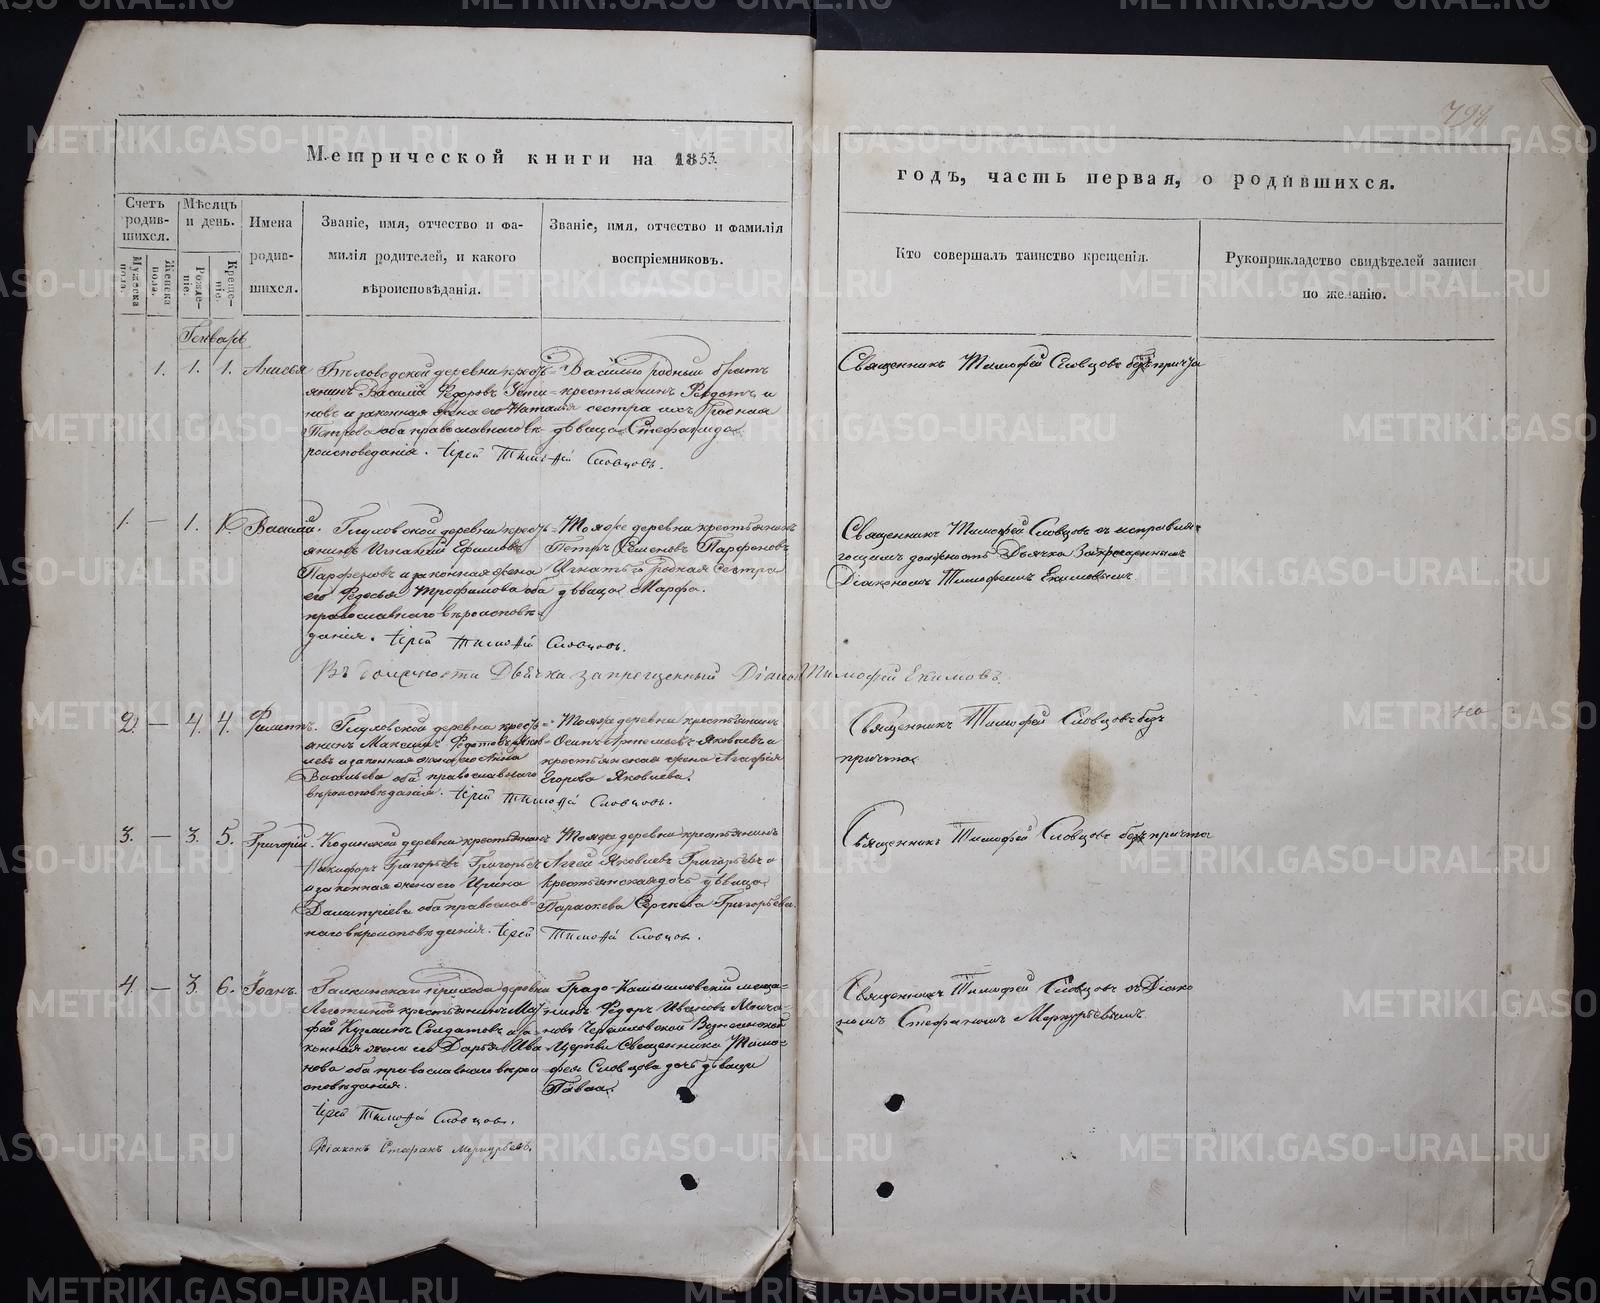 794
Метрической книги на 1853.
годъ, часть первая, о родившихся.
Счетъ родив-
шихся.
Мужеска пола.
Женска пола.
Мѣсяцъ и день.
Рожде-
ніе.
Креще-
ніе.
Имена
родив-
шихся.
Званіе, имя, отчество и фа-
милія родителей, и какого
вѣроисповѣданія.
Званіе, имя, отчество и фамилія
воспріемниковъ.
Кто совершалъ таинство крещенія.
Рукоприкладство свидѣтелей записи
по желанію.
Генварь
1. 1. 1. Анисья
Бѣловодской деревни крест-
янинъ Василій Ѳедоровъ Усти-
новъ и законная жена его Наталія
Петрова оба православнаго вѣ-
роисповеданія. Іерей Тимоѳей Словцовъ.
Василью родный братъ
крестьянинъ Ѳедотъ и
сестра ихъ родная
дѣвица Стефанида
Священникъ Тимофей Словцовъ безъ причта
1. — 1. 1. Василій.
Глуховской деревни кресть-
янинъ Игнатій Ефимовъ
Парфеновъ и законная жена
его Ѳедосья Трофимова оба
православнаго вѣроисповѣ-
данія. Іерей Тимоѳей Словцовъ.
Тояже деревни крестьянинъ
Петръ Семеновъ Парфеновъ
Игнатья родная сестра
дѣвица Марфа.
Священникъ Тимофей Словцовъ съ исправля-
ющимъ должность Дьячка Запрещеннымъ
Діакономъ Тимофеемъ Екимовымъ.
Въ должности Дьячка запрещенный Діаконъ Тимофей Екимовъ.
2. — 4. 4. Филиппъ.
Глуховской деревни кресть-
янинъ Максимъ Ѳедотовъ Яков-
левъ и законная жена его Анна
Васильева оба православнаго
вѣроисповѣданія. Іерей Тимоѳей Словцовъ.
Тояже деревни крестьянинъ
Осипъ Артемьевъ Яковлевъ и
крестьянская жена Агафія
Егорова Яковлева.
Священникъ Тимофей Словцовъ безъ
причта
3. — 3. 5. Григорій.
Кодинской деревни крестьянинъ
Никифоръ Григорьевъ Григорьевъ
и законная жена его Ирина
Дмитріева оба православ-
наго вѣроисповѣданія. Іерей Тимоѳей Словцовъ.
Тояже деревни крестьянинъ
Аггей Яковлевъ Григорьевъ и
крестьянская дочь дѣвица
Параскева Сергѣева Григорьева.
Священникъ Тимофей Словцовъ безъ причта
4. — 3. 6. Іоанъ.
Галкинскаго прихода деревни
крестьянинъ Мат-
фей Кузминъ Солдатовъ и за-
конная жена его Дарья Ива-
нова оба православнаго вѣрои-
сповѣданія.
Іерей Тимоѳей Словцовъ.
Діаконъ Стефанъ Меркурьевъ.
Градо-Камышловскій меща-
нинъ Ѳедоръ Ивановъ
Вознесенской
Церкви Священника Тимо-
фея Словцова дочь дѣвица
Павла.
Священникъ Тимофей Словцовъ съ Діако
номъ Стефаномъ Меркурьевымъ.
METRIKI.GASO-URAL.RU